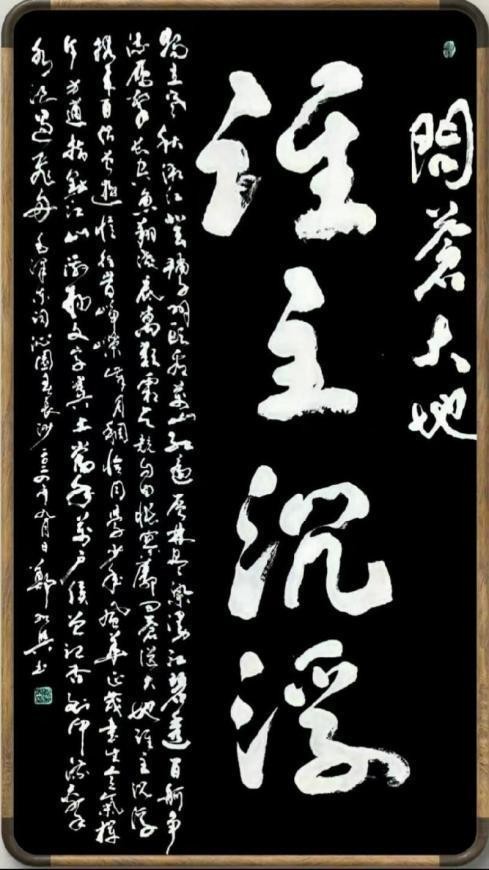 問蒼大地
誰主沉浮
獨立寒秋湘江北去橘子洲頭看萬山紅遍層林盡染漫江碧透百舸爭
流鷹擊長空魚翔淺底萬類霜天競自由悵寥廓問蒼茫大地誰主沉浮
攜來百侶曾遊憶往昔崢嶸歲月稠恰同學少年風華正茂書生意氣揮
斥方遒指點江山激揚文字糞土當年萬戶侯曾記否到中流擊
水浪遏飛舟毛澤東詞沁園春長沙 年九月日鄭 書